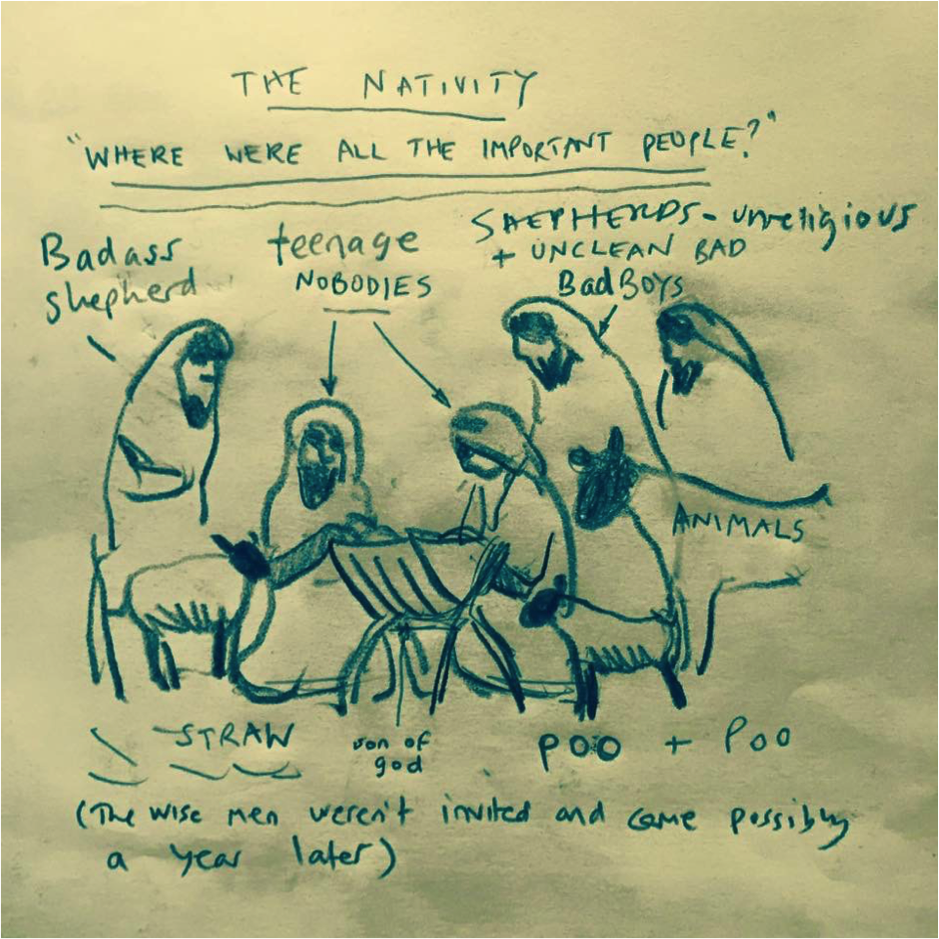 THE NATIVITY
"WHERE WERE ALL THE IMPORTANT PEOPLE?"
Badass
shepherd
teenage
NOBODIES
SHEPHERDS - unreligious
+ UNCLEAN BAD
BadBoys
ANIMALS
STRAW
son of
god
POO + POO
(The wise men weren't invited and came possibly
a year later)